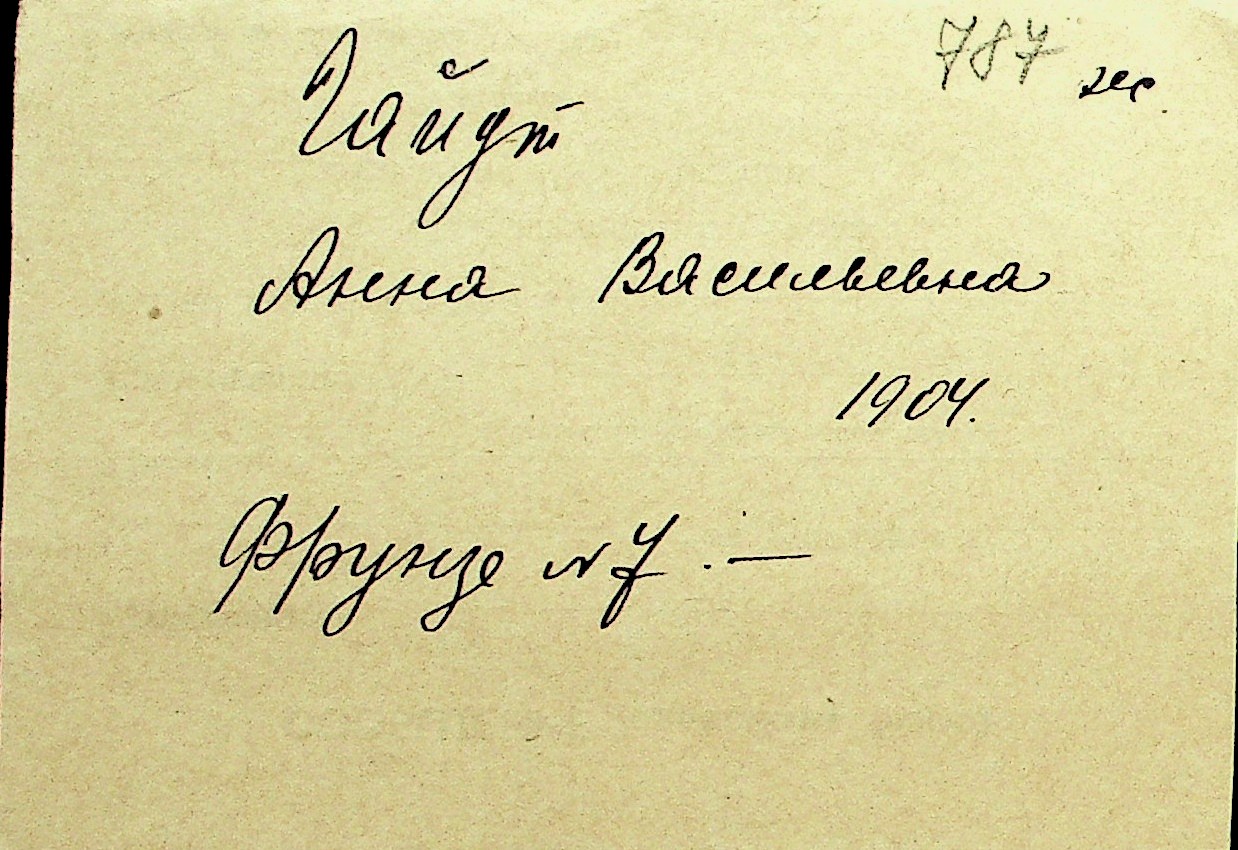 787 же
Гайдт
Анна Васильевна
1904.
Фрунзе № 7. —